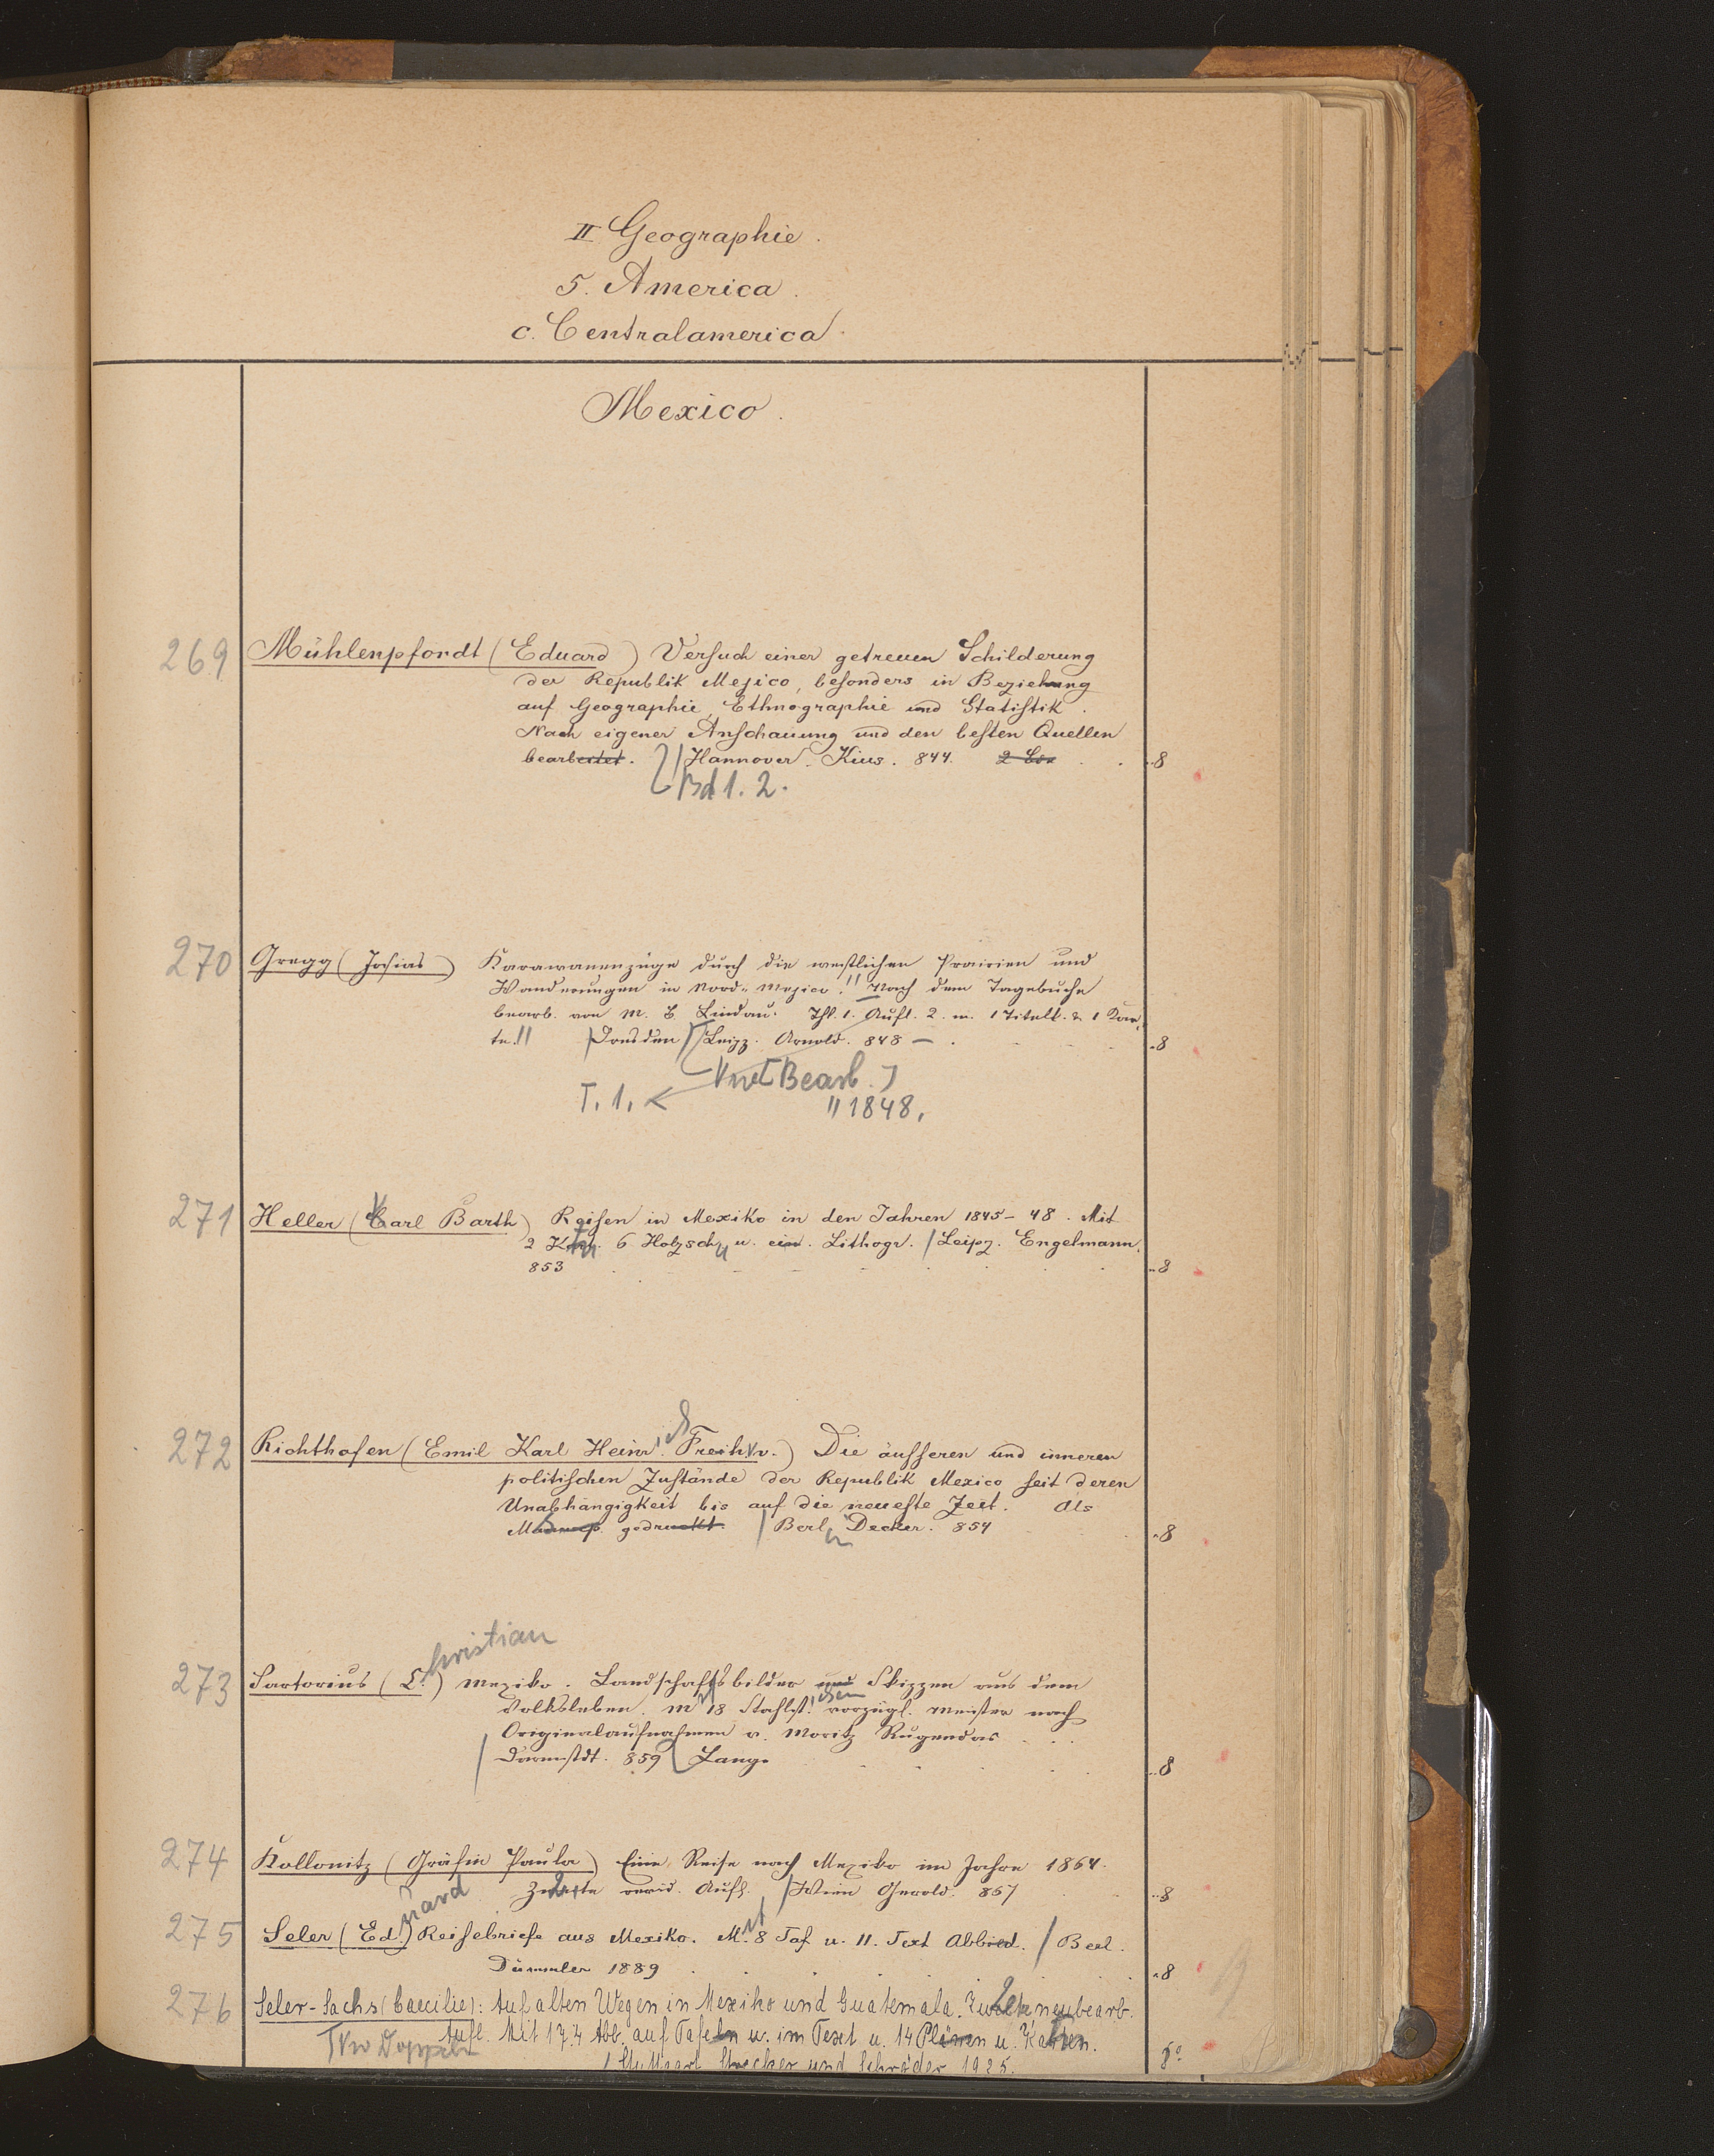 II Geographie.
5. America.
c. Centralamerica.
Mexico.
269 Mühlenpfordt (Eduard) Versuch einer getreuen Schilderung
der Republik Mejico, besonders in Beziehung
auf Geographie, Ethnographie und Statistik.
Nach eigener Anschauung und den besten Quellen
bearbeitet. / Hannover. Kius. 844. 2 Bde 8
Bd 1. 2.
270 Gregg (Josias) Karawanenzüge durch die westlichen Prairien und
Wanderungen in Nord-Mejico. Nach dem Tagebuche
bearb. von M. B. Lindau. Thl. 1. Aufl. 2. m. 1 Titelk. & 1 Kar-
te. / Dresden / Leipz. Arnold. 848 — 8
Bearb.
T. 1. 1848.
271 Heller (Carl Barth) Reisen in Mexiko in den Jahren 1845-48. Mit
2 6 Holzsch. u. ein. Lithogr. / Leipz. Engelmann.
853 8
272 Richthofen (Emil Karl Heinr. Freih. v.) Die äusseren und inneren
politischen Zustände der Republik Mexico seit deren
Unabhängigkeit bis auf die neueste Zeit. Als
Manusp. gedruckt. / Berl. Decker. 854 8
christian
273 Sartorius (C.) Mexiko. Landschaftsbilder und Skizzen aus dem
Volksleben. M 18 Stahlst. vorzügl. Meister nach
Originalaufnahmen v. Moritz Rugendas
/ Darmstdt. 859 Lange 8
274 Kollonitz (Gräfin Paula) Eine Reise nach Mexiko im Jahre 1864.
Zweite revid. Aufl. / Wien Gerold. 867 8
uard
275 Seler (Ed.) Reisebriefe aus Mexiko. M. 8 Taf u. 11. Text Abbild. / Berl.
Dümmler 1889 8
276 Seler-Sachs (Caecilie): Auf alten Wegen in Mexiko und Guatemala. Zweite neubearb.
Aufl. Mit 174 Abb. auf Tafeln u. im Text u. 14 Plänen u. Karten. 8°
/ Stuttgart Strecker und Schröder 1925.